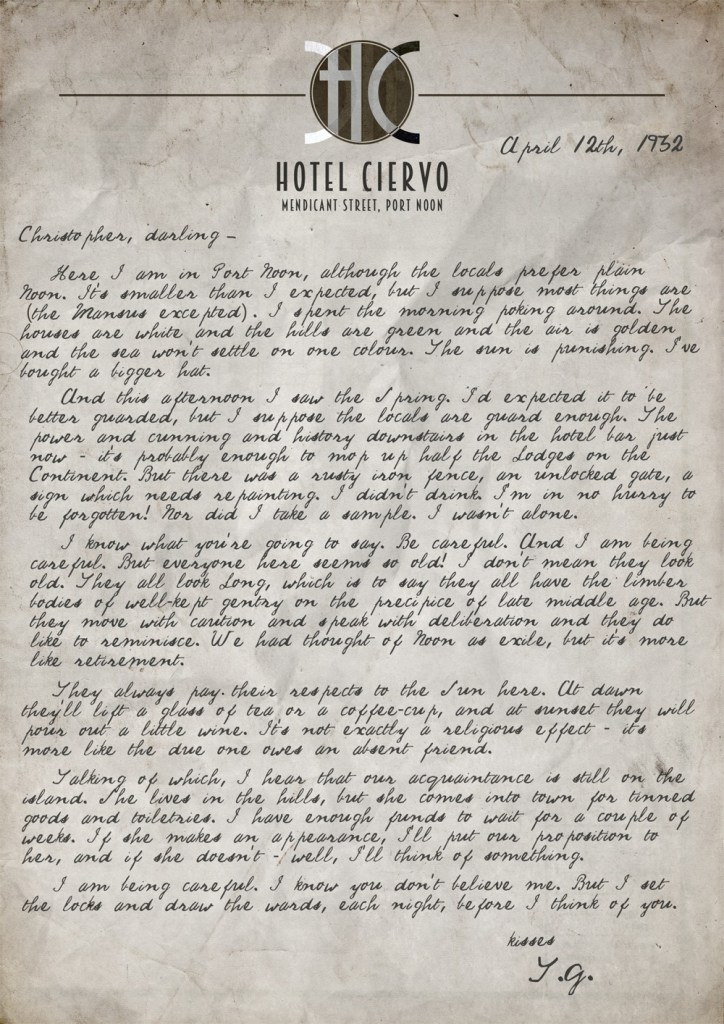 HC
April 12th, 1932
HOTEL CIERVO
MENDICANT STREET, PORT NOON
Christopher, darling –
Here I am in Port Noon, although the locals prefer plain
Noon. It's smaller than I expected, but I suppose most things are
(the Mansus excepted). I spent the morning poking around. The
houses are white and the hills are green and the air is golden
and the sea won't settle on one colour. The sun is punishing. I've
bought a bigger hat.
And this afternoon I saw the Spring. I'd expected it to be
better guarded, but I suppose the locals are guard enough. The
power and cunning and history downstairs in the hotel bar just
now - it's probably enough to mop up half the Lodges on the
Continent. But there was a rusty iron fence, an unlocked gate, a
sign which needs repainting. I didn't drink. I'm in no hurry to
be forgotten! Nor did I take a sample. I wasn't alone.
I know what you're going to say. Be careful. And I am being
careful. But everyone here seems so old! I don't mean they look
old. They all look Long, which is to say they all have the limber
bodies of well-kept gentry on the precipice of late middle age. But
they move with caution and speak with deliberation and they do
like to reminisce. We had thought of Noon as exile, but it's more
like retirement.
They always pay their respects to the Sun here. At dawn
they'll lift a glass of tea or a coffee-cup, and at sunset they will
pour out a little wine. It's not exactly a religious effect - it's
more like the due one owes an absent friend.
Talking of which, I hear that our acquaintance is still on the
island. She lives in the hills, but she comes into town for tinned
goods and toiletries. I have enough funds to wait for a couple of
weeks. If she makes an appearance, I'll put our proposition to
her, and if she doesn't - well, I'll think of something.
I am being careful. I know you don't believe me. But I set
the locks and draw the wards, each night, before I think of you.
kisses
T.G.